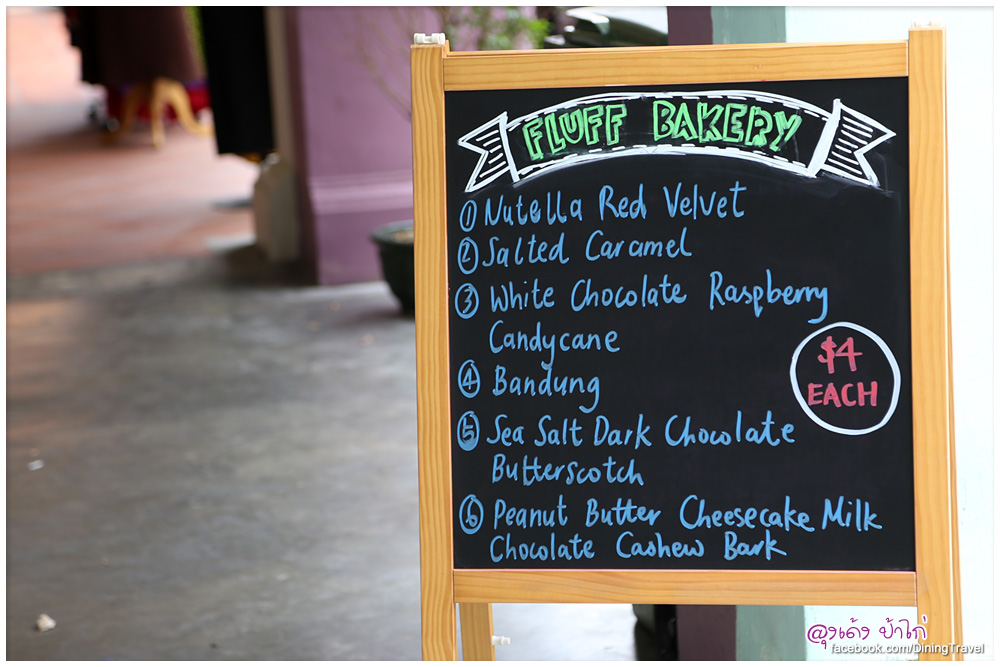 FLUFF BAKERY
① Nutella Red Velvet
② Salted Caramel
③ White Chocolate Raspberry
Candycane
④ Bandung
⑤ Sea Salt Dark Chocolate
Butterscotch
⑥ Peanut Butter Cheesecake Milk
Chocolate Cashew Bark
$4
EACH
ลุงเด้ง ป้าไก่
facebook.com/DiningTravel